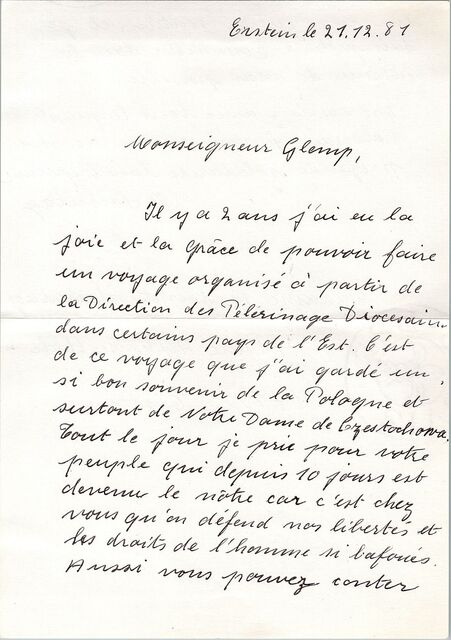 Erstein le 21.12.81
Monseigneur Glemp,
Il y a 2 ans j'ai eu la
joie et la grâce de pouvoir faire
un voyage organisé à partir de
la Direction des Pélérinage Diocesain
dans certains pays de l'Est. C'est
de ce voyage que j'ai gardé un
si bon souvenir de la Pologne et
surtout de Notre Dame de Częstochowa.
Tout le jour je prie pour votre
peuple qui depuis 10 jours est
devenu le nôtre car c'est chez
vous qu'on défend nos libertés et
les droits de l'homme si bafoués.
Aussi vous pouvez conter